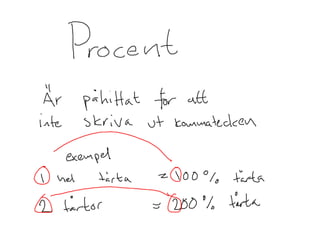 Procent
Är påhittat för att
inte skriva ut kommatecken
exempel
1 hel tårta ≈ 100% tårta
2 tårtor ≈ 200% tårta